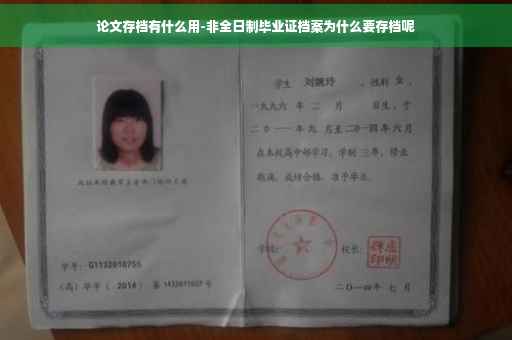 论文存档有什么用-非全日制毕业证档案为什么要存档呢
学生 刘婉玲 ，性别 女 ，
一九九六 年 二 月 日生，于
二〇一一 年 九 月至 二〇一四 年 六 月
在本校高中部学习，学制 三年，修业
期满，成绩合格，准予毕业。
学校：
校长：
学号： G1132010755
（高）毕字（ 2014 ）第 1432011027 号
二〇一四年 七 月